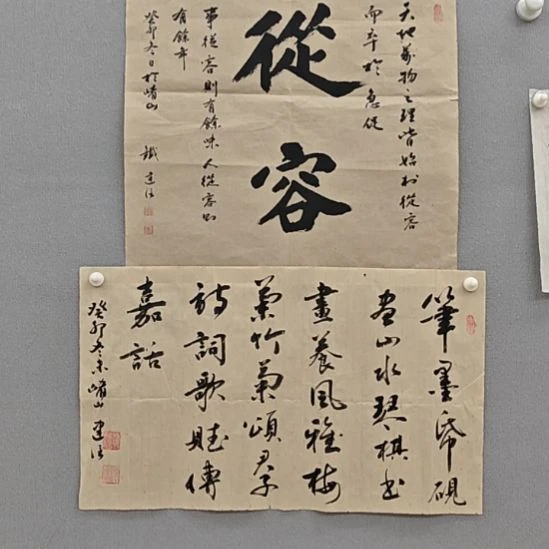 天地萬物之理皆始於從容
而卒於急促
從容
事從容則有餘味人從容則
有餘年
癸卯冬日於崂山
鐵建
筆墨紙硯
畫山水琴棋書
畫養風雅梅
蘭竹菊頌君子
詩詞歌賦傳
嘉話
癸卯冬末崂山建